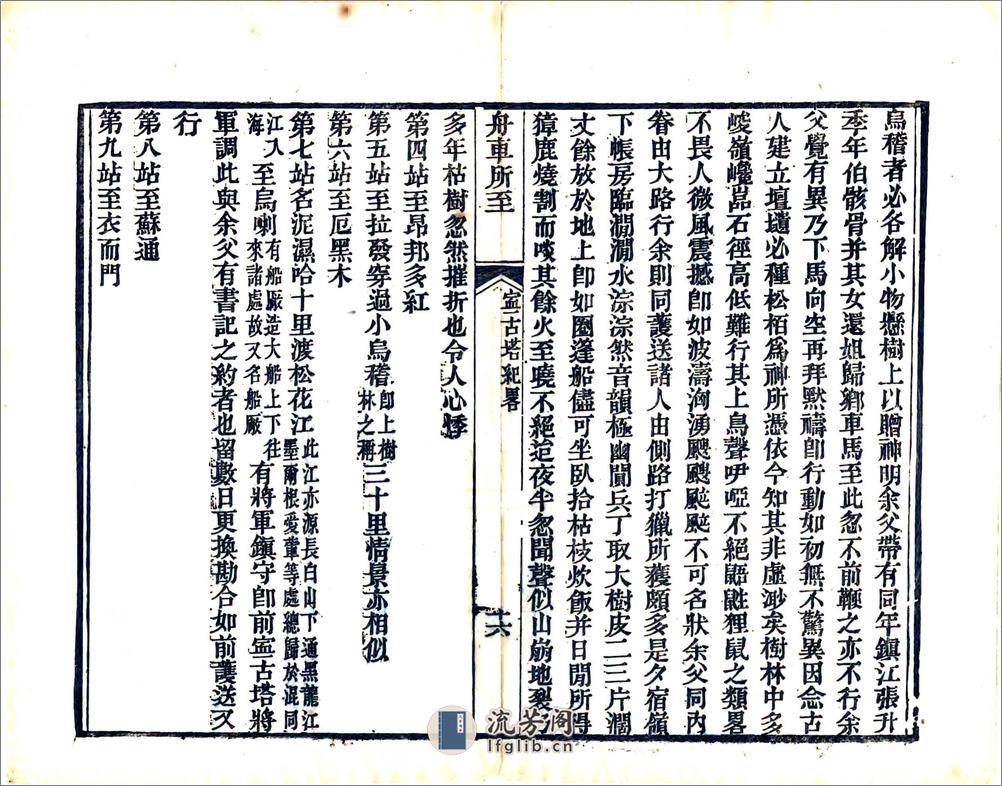 烏稽者必各解小物懸樹上以贈神明余父帶有同年鎮江張升
季年伯骸骨并其女還姐歸鄉車馬至此忽不前鞭之亦不行余
父覺有異乃下馬向空再拜默禱卽行動如初無不驚異因念古
人建立壇壝必種松栢爲神所憑依今知其非虛渺矣樹林中多
峻嶺巉嵓石徑高低難行其上鳥聲咿啞不絕鼯鼪狸鼠之類畧
不畏人微風震撼卽如波濤洶湧颼颼颭颭不可名狀余父同内
眷由大路行余則同護送諸人由側路打獵所獲頗多是夕宿嶺
下帳房臨澗澗水淙淙然音韻極幽聞兵丁取大樹皮二三片濶
丈餘放於地上卽如圈蓬船儘可坐臥拾枯枝炊飯并日閒所得
獐鹿燒割而啖其餘火至曉不絕迨夜半忽聞聲似山崩地裂乃
舟車所至
寍古塔紀畧
十六
多年枯樹忽然摧折也令人心悸
第四站至昂邦多紅
第五站至拉發穿過小烏稽卽上樹林之稱三十里情景亦相似
第六站至厄黑木
第七站名泥濕哈十里渡松花江此江亦源長白山下通黑龍江墨爾根愛葷等處總歸於混同
江入海至烏喇有船厰造大船上下往來諸處故又名船厰有將軍鎮守卽前寍古塔將
軍調此與余父有書記之約者也留數日更換勘合如前護送又
行
第八站至蘇通
第九站至衣而門
流芳閣
lfglib.cn